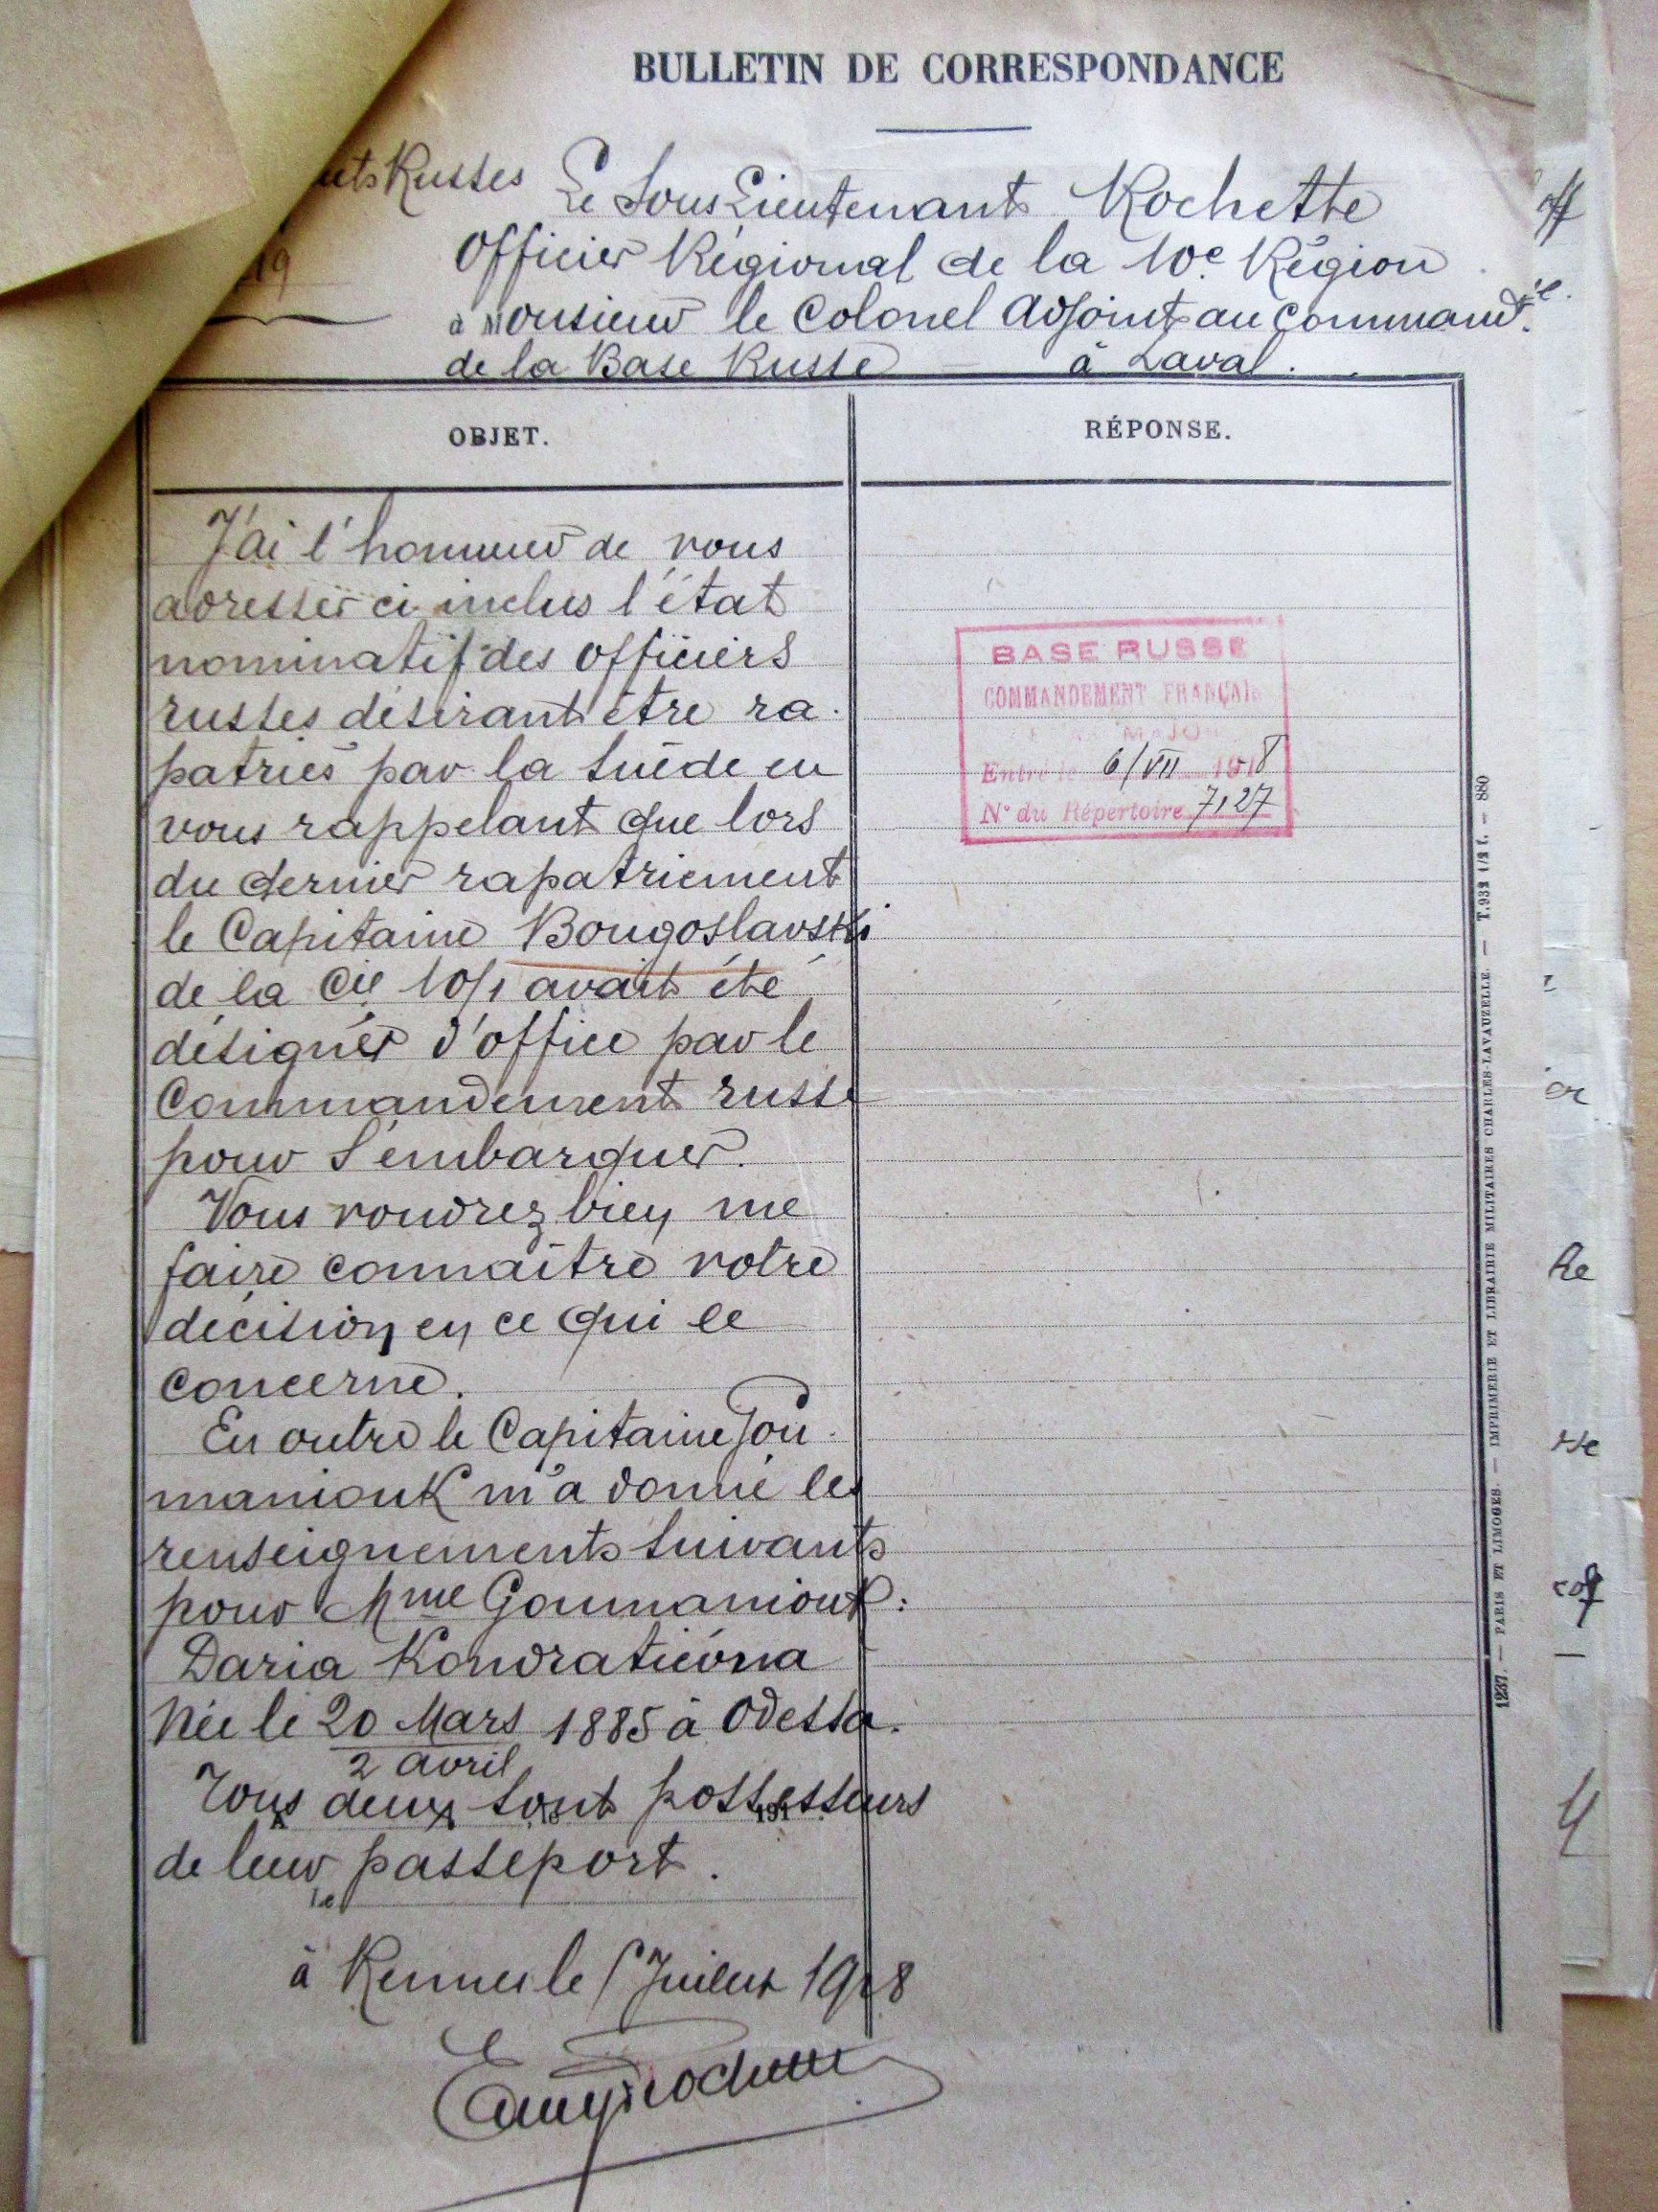 BULLETIN DE CORRESPONDANCE
Russes
Le Sous Lieutenant Rochette
Officier Régional de la 10e Région
19
à Monsieur le Colonel Adjoint au Commandt
de la Base Russe — à Laval.
OBJET.
RÉPONSE.
J'ai l'honneur de vous
adresser ci inclus l'état
nominatif des officiers
russes désirant être ra-
patriés par la Suède en
vous rappelant que lors
du dernier rapatriement
le Capitaine Bougoslavski
de la Cie 10/1 avait été
désigner d'office par le
Commandement russe
pour s'embarquer.
Vous voudrez bien me
faire connaître votre
décision en ce qui le
concerne.
En outre le Capitaine Gou-
maniouk m'a donné les
renseignements suivants
pour Mme Goumaniouk:
Daria Kondratiévna
Née le 20 Mars 1885 à Odessa.
2 avril
Tous deux sont possesseurs
de leur passeport.
Le
à Rennes le 5 Juillet 1918
BASE RUSSE
COMMANDEMENT FRANÇAIS
MAJOR
Entré le 6/VII 1918
N° du Répertoire 7,27
1237. — PARIS ET LIMOGES. — IMPRIMERIE ET LIBRAIRIE MILITAIRES CHARLES-LAVAUZELLE. — T.932 1/2 f. — 880